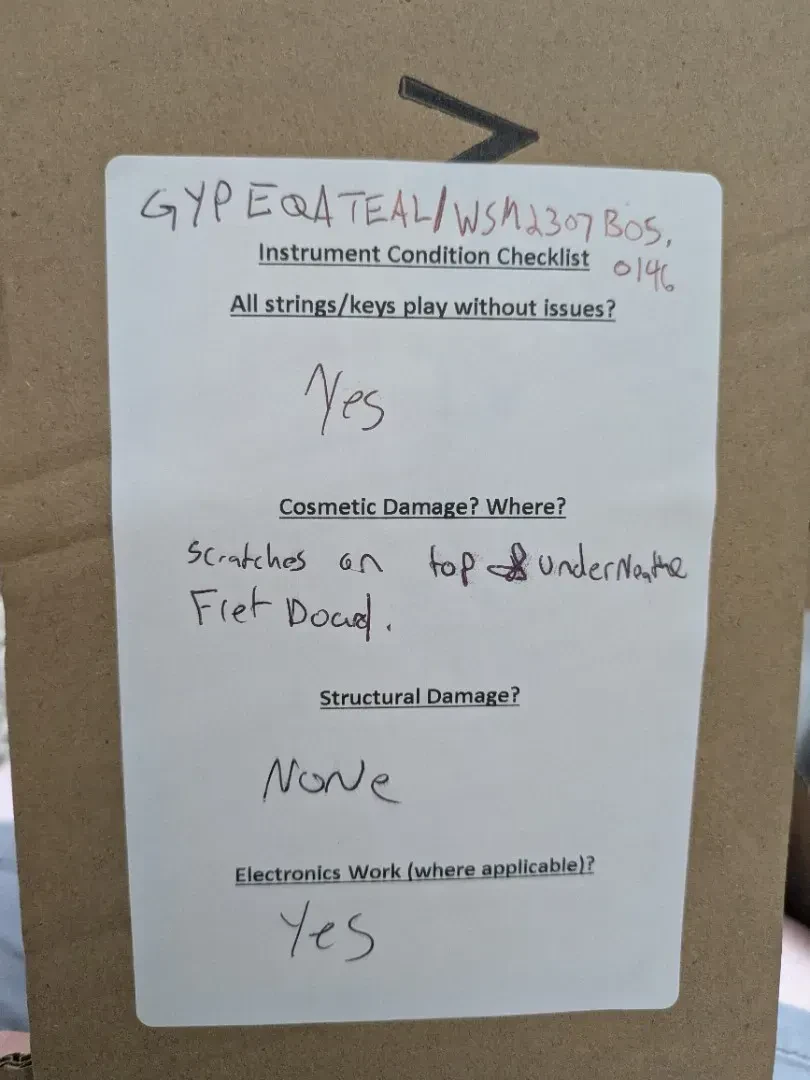 GYPEQATEAL/WSM2307BOS.
0146
Instrument Condition Checklist
All strings/keys play without issues?
Yes
Cosmetic Damage? Where?
Scratches on top & underNeathe
Fret Doard.
Structural Damage?
NoNe
Electronics Work (where applicable)?
Yes